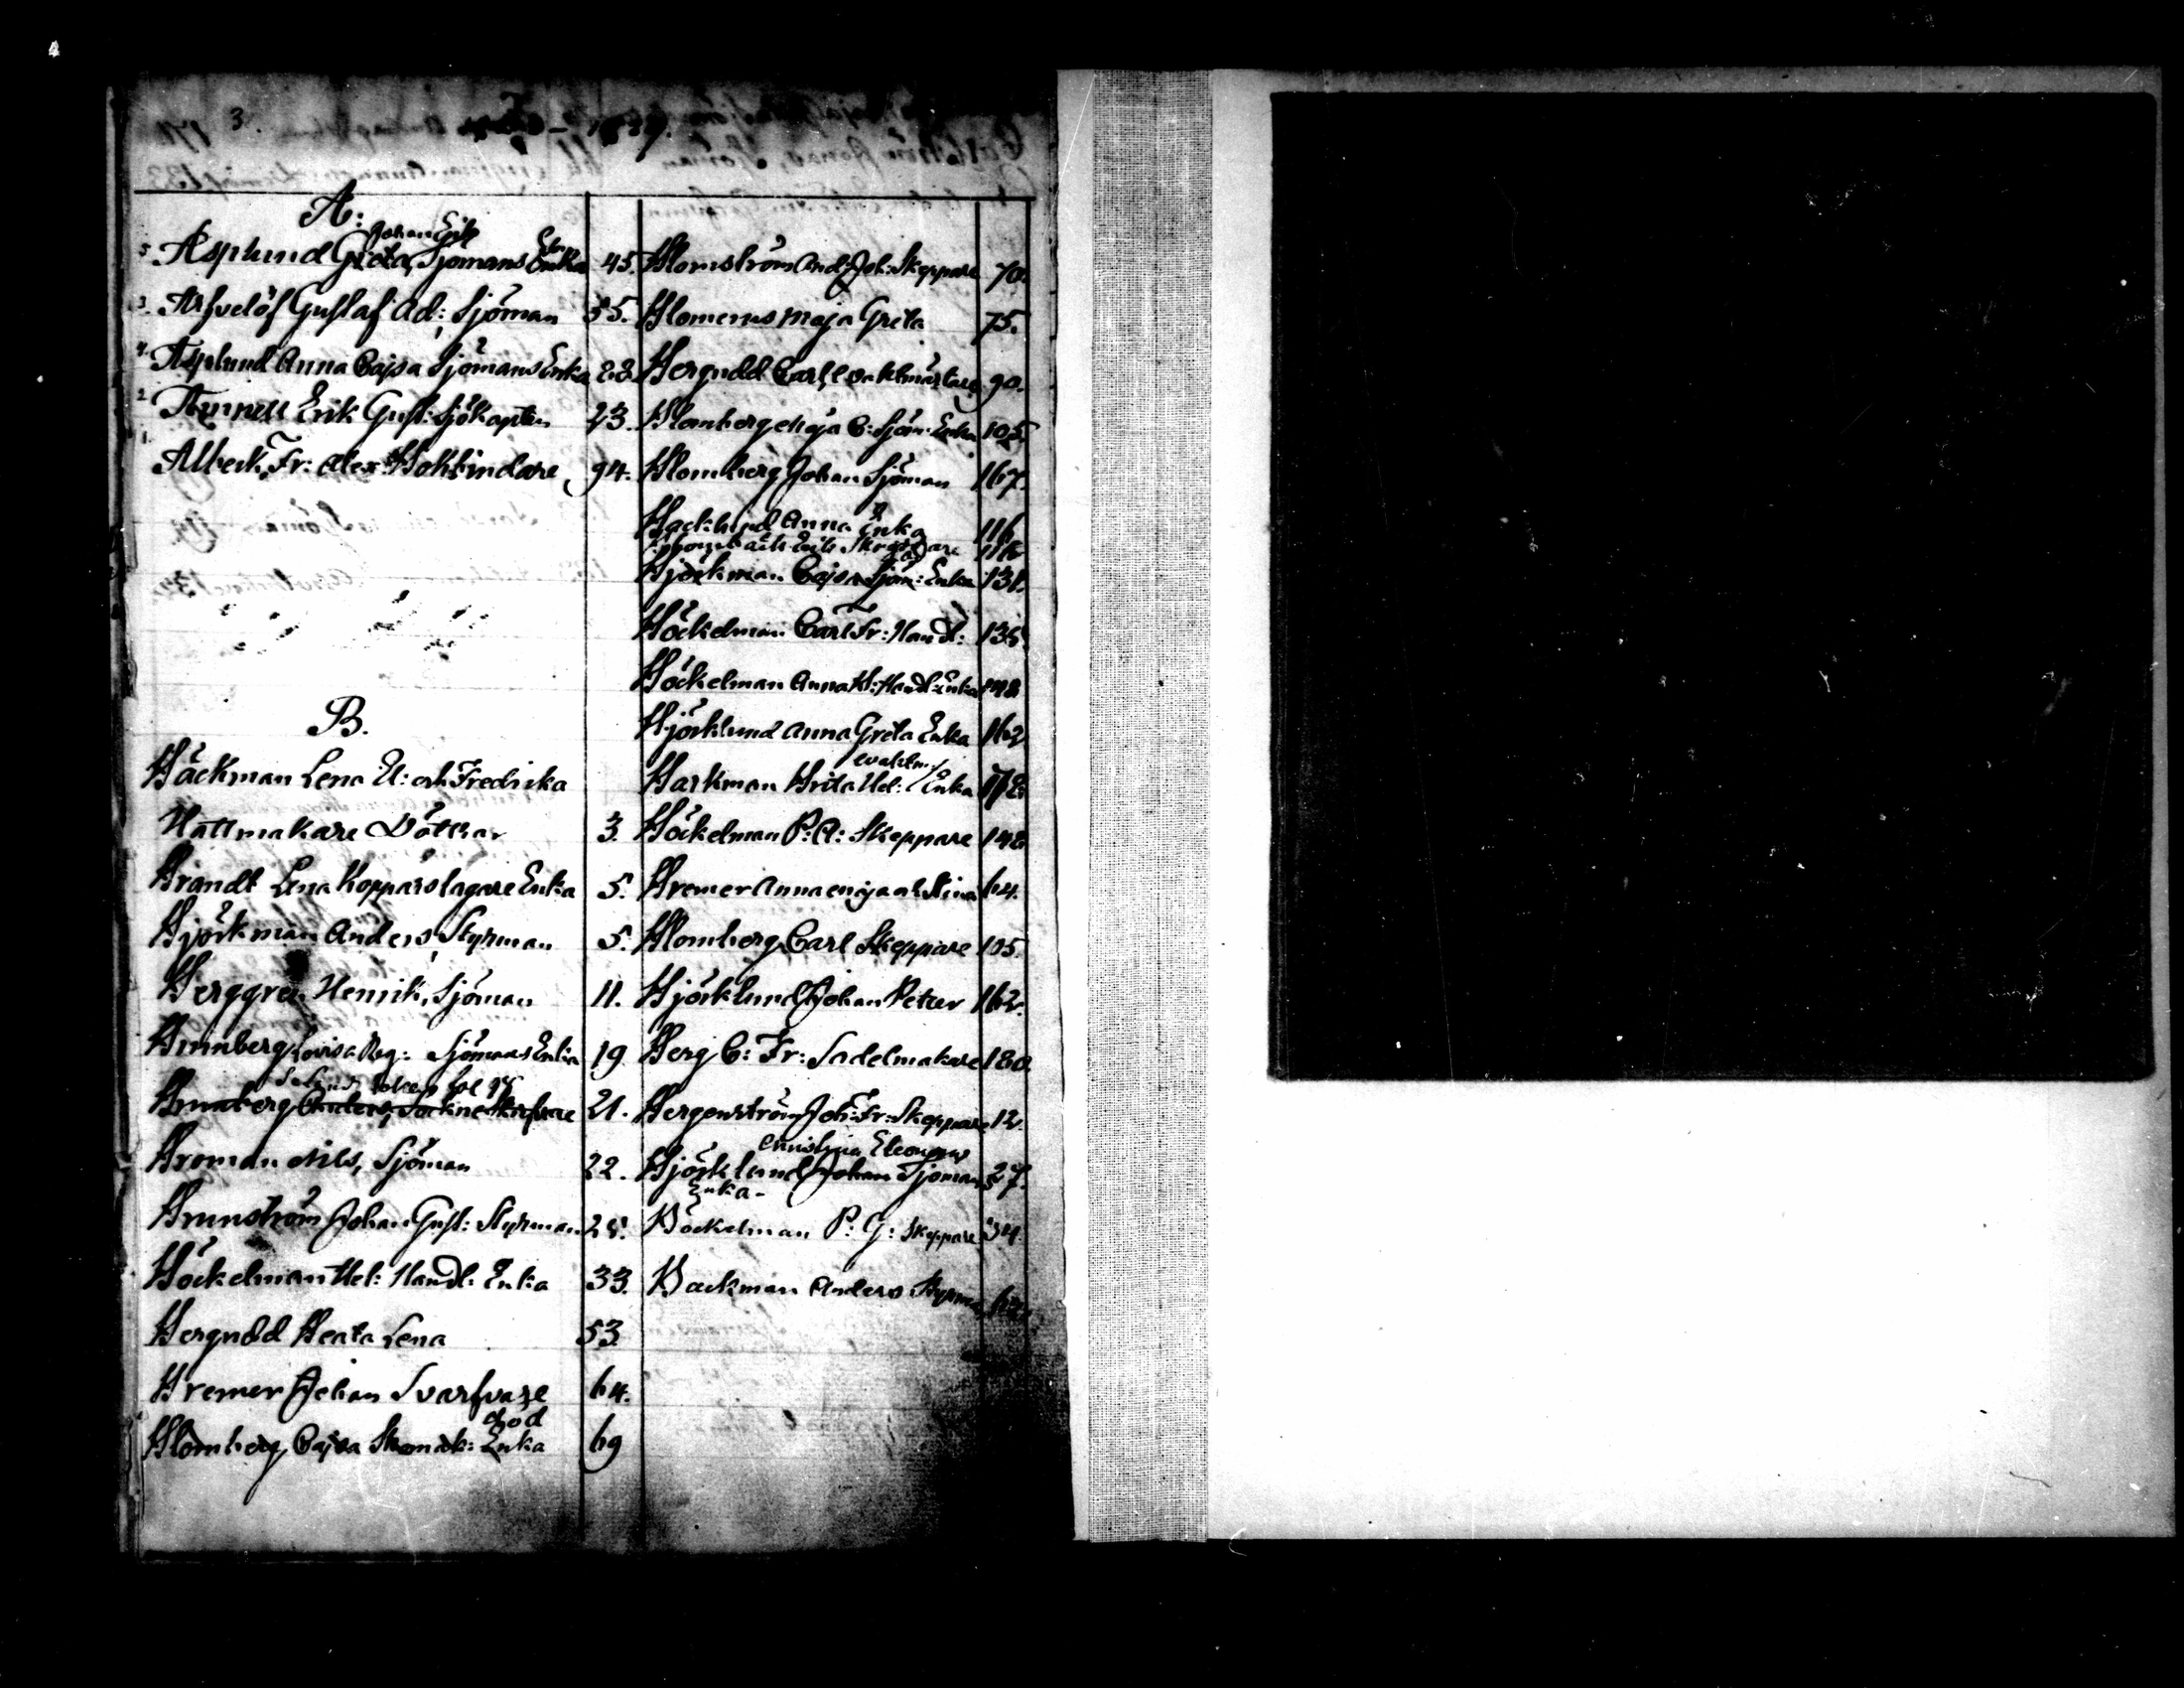 3.
A:
Johan Erik
5. Asplund Greta, Sjömans Enka 45.
3. Arfvelöf Gustaf Ad: Sjöman 35.
4. Asplund Anna Cajsa Sjömans Enka 23.
2. Erik Gust: Sjökapten 23.
1. Albeck, Fr: Alex: Bokbindare 94.
B.
Bäckman Lena El: och Fredrika
Hattmakare Döttrar 3.
Brandt Lena Kopparslagare Enka 5.
Björkman Anders, Styrman 5.
Berggren Henrik, Sjöman 11.
Brunberg Lovisa Reg: Sjömans Enka 19
Brunberg Anders Sockne Skrifvare 21.
Broman Nils, Sjöman 22.
Brunström Johan Gust: Styrman 25.
Böckelman Hel: Handl: Enka 33.
Bergudd Beata Lena 53
Bremer Johan Svarfvare 64.
död
Blomberg Cajsa Skomak: Enka 69
Blomström And: Joh: Skeppare 70.
Blomerus Maja Greta 75.
Bergudd Carl, Vaktmästare 90.
Blomberg Maja C: Sjöm: Enka 105.
Blomberg Johan Sjöman 167.
Anna Enka 116
Erik
Björkman Cajsa Sjöm: Enka 131.
Böckelman Carl Fr: Handl: 135.
Böckelman Anna Handl: Enka 148
Björklund Anna Greta Enka 162
Barkman Brita Hel: Enka 172.
Böckelman P: A: Skeppare 148
Bremer Anna Maja Stina 64.
Blomberg Carl Skeppare 105.
Björklund Johan Petter 162.
Berg C: Fr: Sadelmakare 180.
Bergenström Joh: Fr: Skeppare 12.
Christina Eleonora
Björklund Johan Sjöman 27.
Enka
Böckelman P: G: Skeppare 34.
Backman Anders Styrman